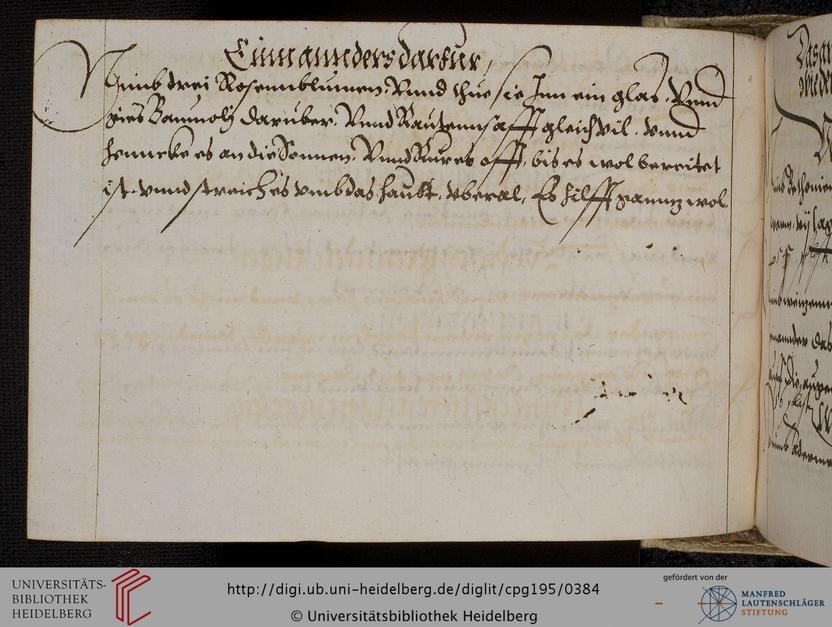 Ein annders darfur,
Nimb drei Rosennbluemen, Vnnd thue sie Jnn ein glas, Vnnd
gies Baumolj daruber, Vnnd Rautennsafft gleich vil, vnnd
hennckh es an die Sonnen, Vnnd Rures offt, bis es wol bereitet
ist, vnnd streich es vmb das haubt, vberal, Es hilfft gannz wol
UNIVERSITÄTS-
BIBLIOTHEK
HEIDELBERG
http://digi.ub.uni-heidelberg.de/diglit/cpg195/0384
© Universitätsbibliothek Heidelberg
gefördert von der
MANFRED
LAUTENSCHLÄGER
STIFTUNG